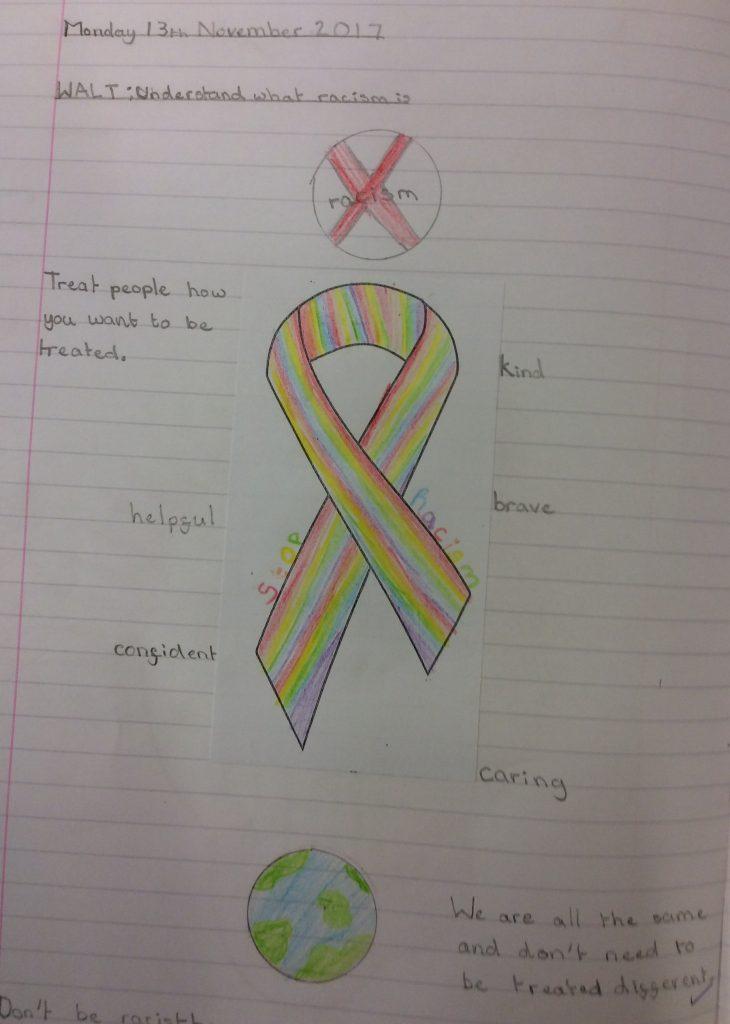 Monday 13th November 2017
WALT: Understand what racism is
racism
Treat people how
you want to be
treated.
kind
helpful
brave
Stop
Racism
confident
caring
We are all the same
and don't need to
be treated different
Don't be